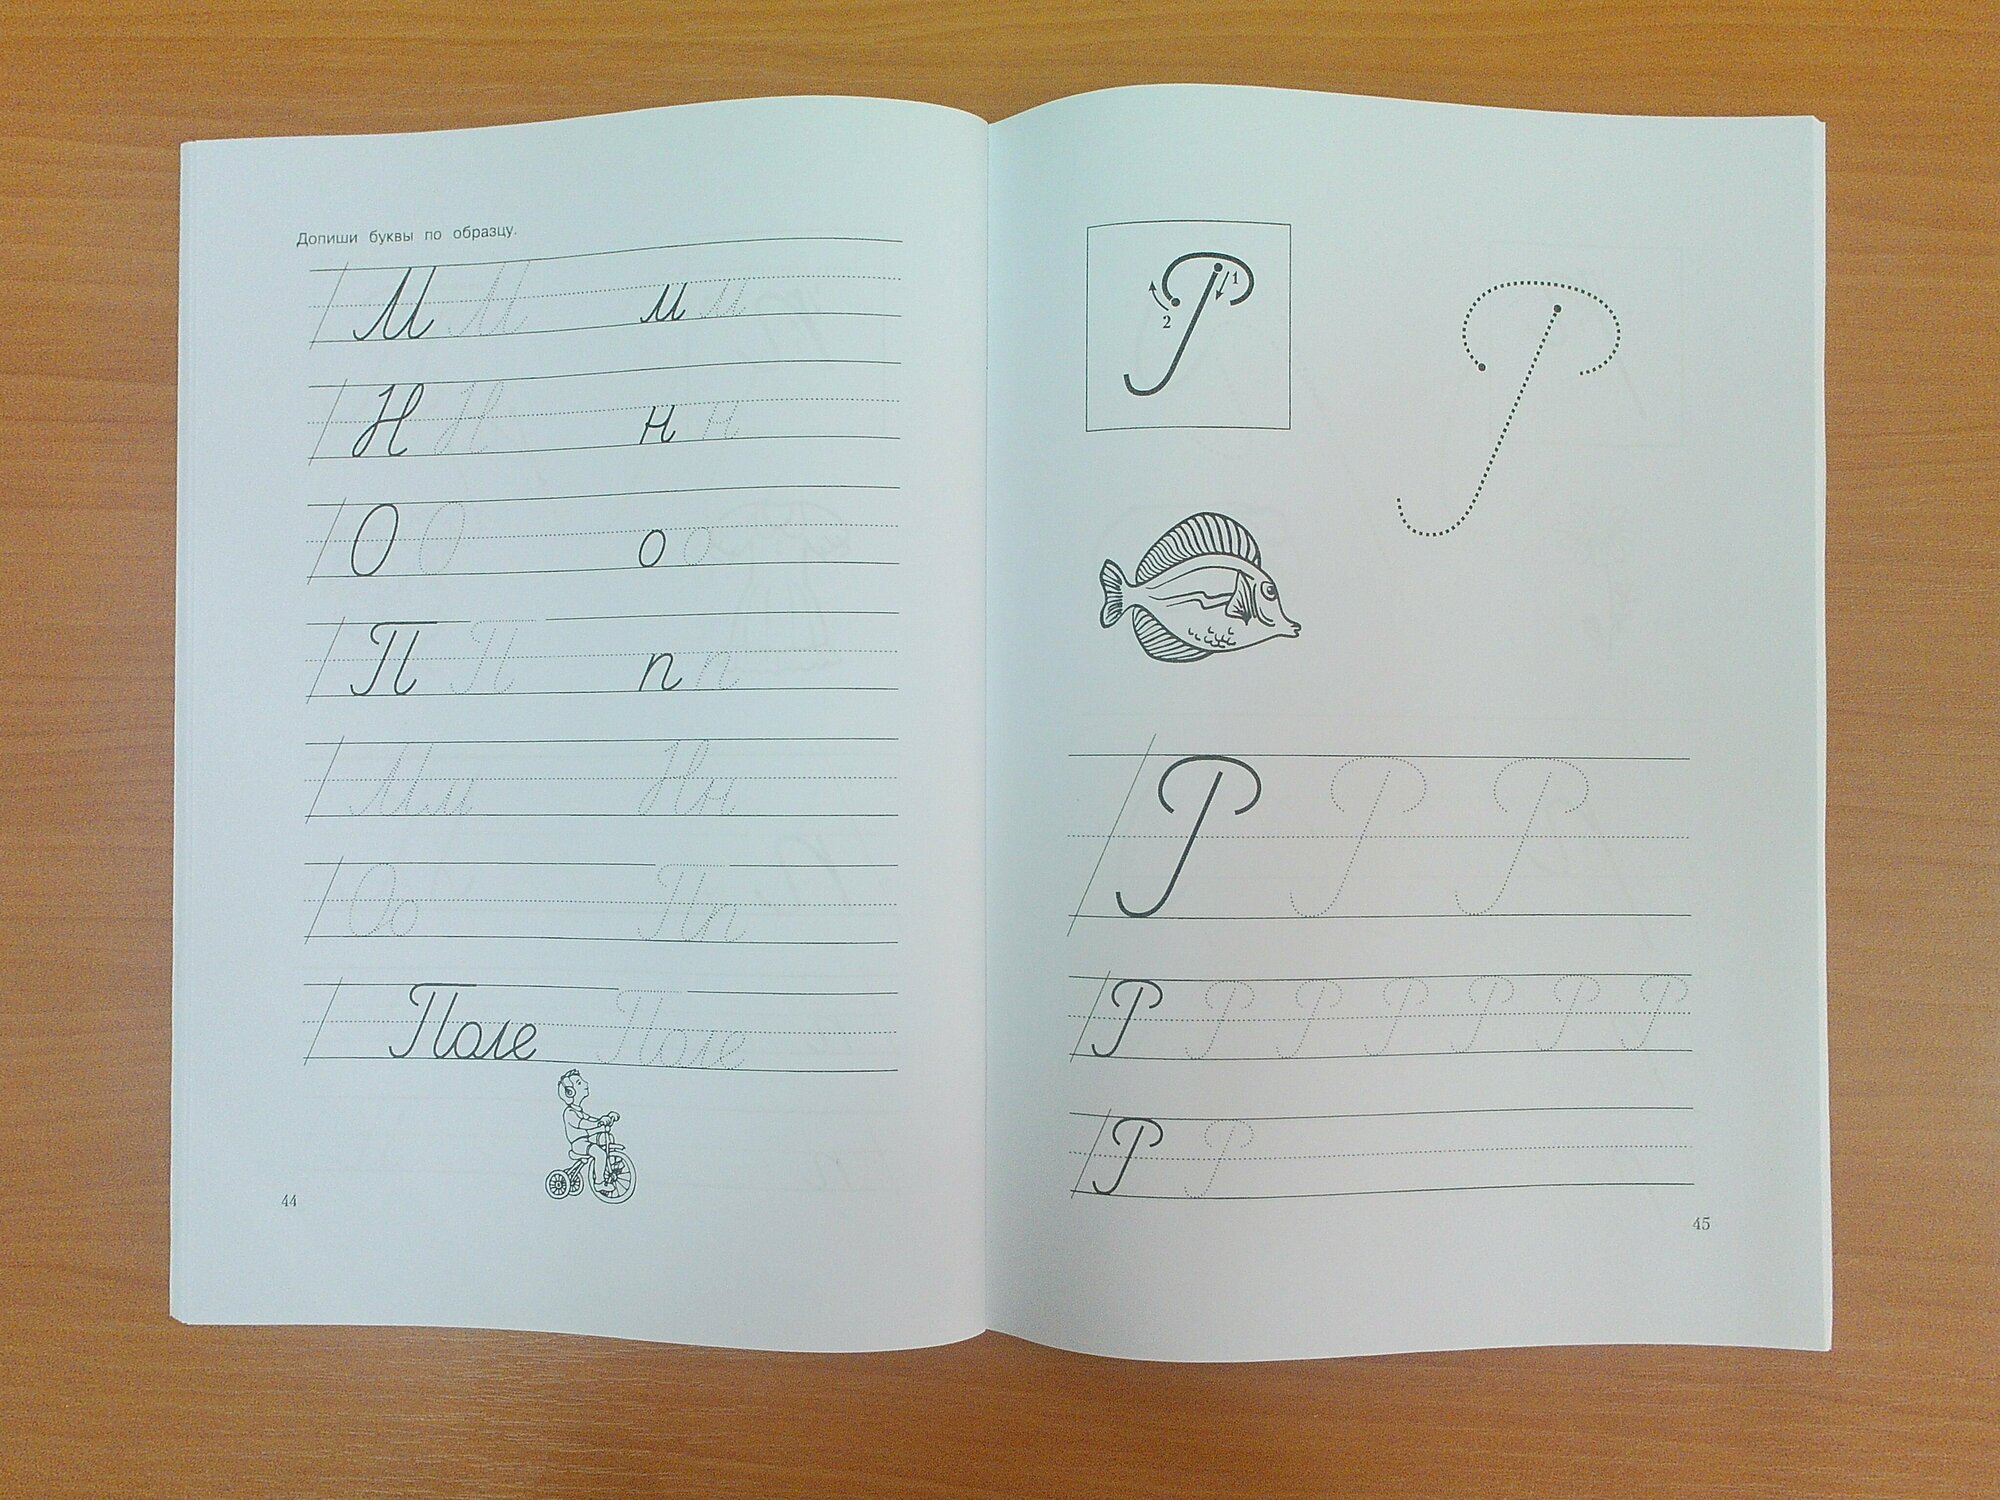 Допиши буквы по образцу.
М М м м
Н Н н н
О О о о
П П п п
Мм Нн
Оо Пп
Поле Поле
44
Р
1
2
Р
Р Р Р
Р Р Р Р Р Р Р
Р Р
45